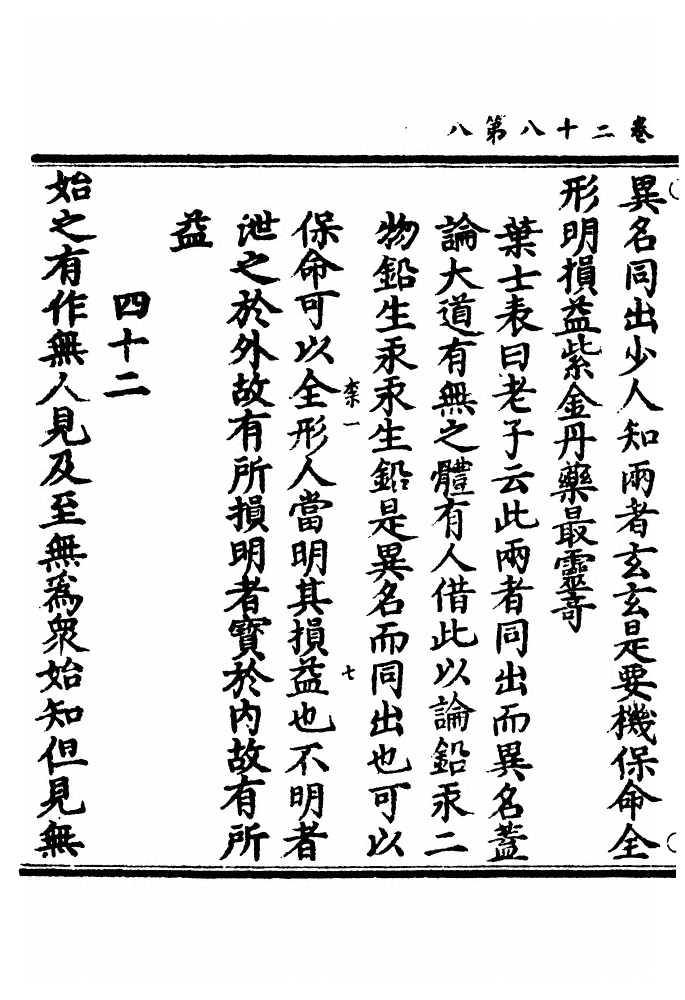 卷二十八第八
異名同出少人知兩者玄玄是要機保命全
形明損益紫金丹藥最靈奇
葉士表曰老子云此兩者同出而異名蓋
論大道有無之體有人借此以論鉛汞二
物鉛生汞汞生鉛是異名而同出也可以
保命可以全形人當明其損益也不明者
泄之於外故有所損明者寳於内故有所
益
四十二
始之有作無人見及至無爲衆始知但見無
一
七